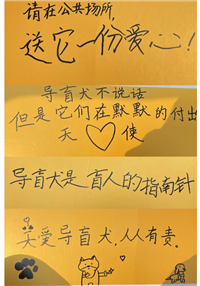 请在公共场所,
送它一份爱心!
导盲犬不说话
但是它们在默默的付出
天使
导盲犬是盲人的指南针
关爱导盲犬,人人有责.